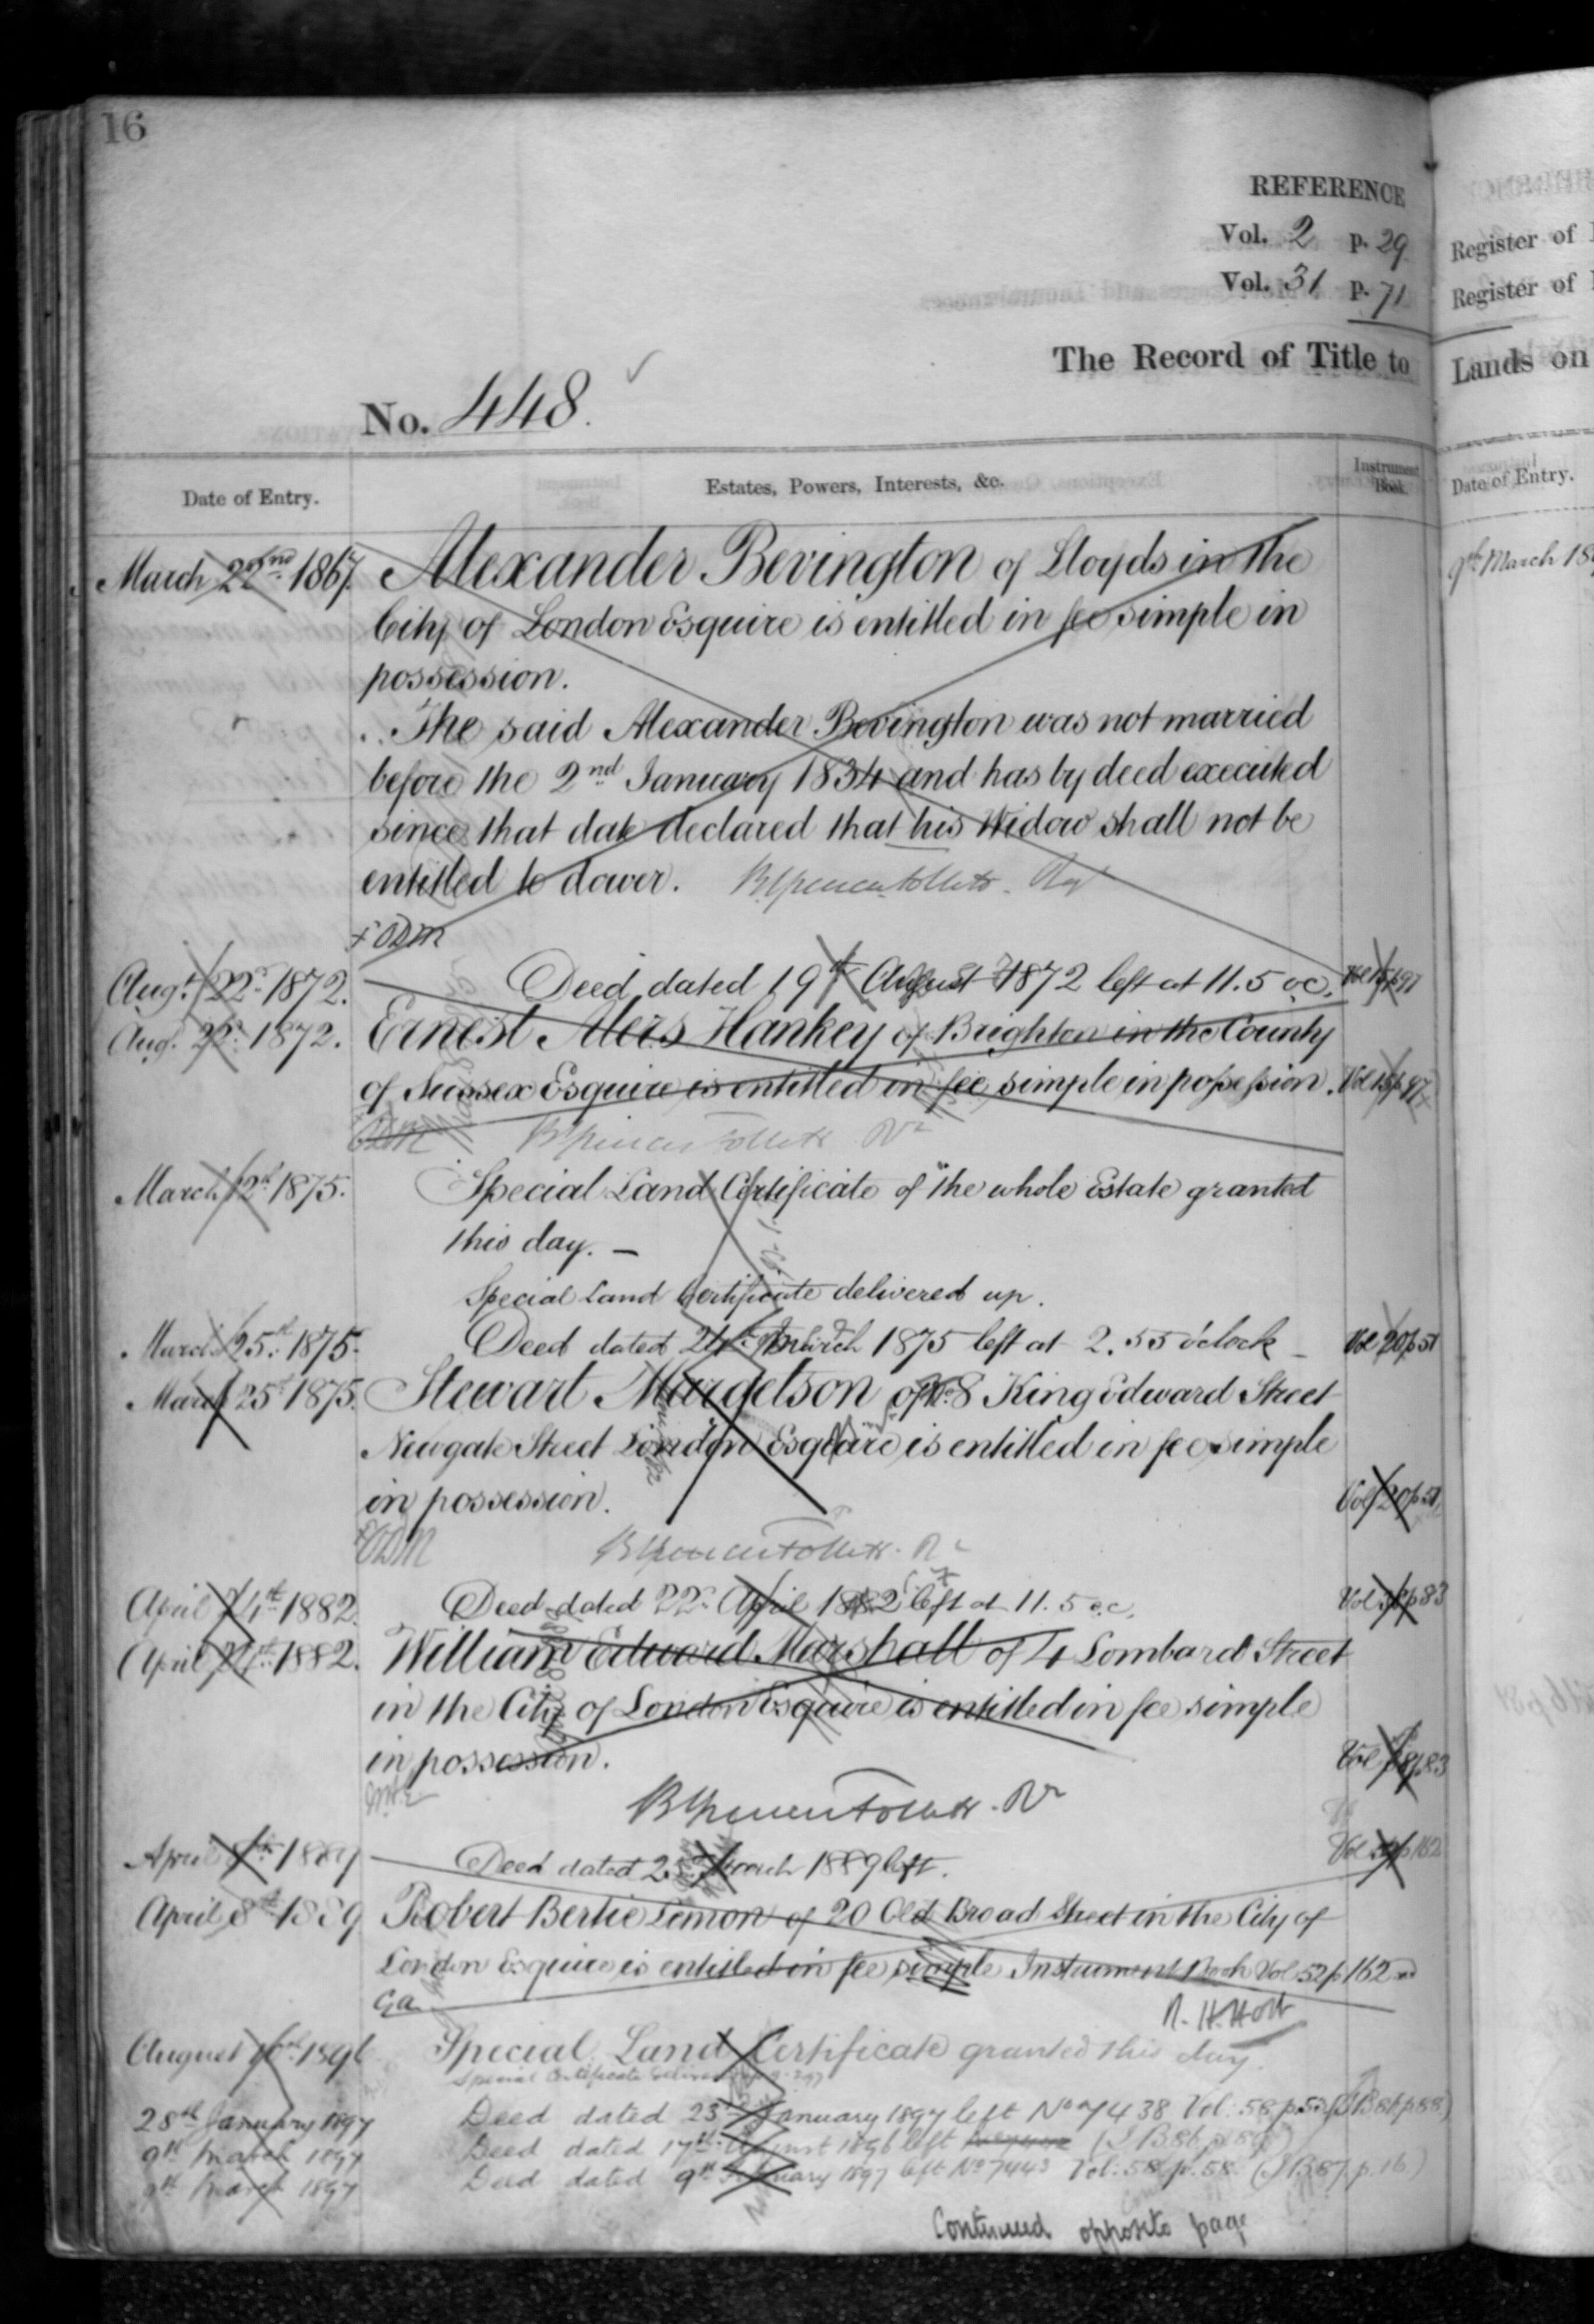 16
REFERENCE
Vol. 2 p. 29
Vol. 31 p. 71
The Record of Title to
No. 448.
Date of Entry. Estates, Powers, Interests, &c. Instrument Book.
March 22nd 1867. Alexander Bevington of Lloyds in the
City of London Esquire is entitled in fee simple in
possession.
The said Alexander Bevington was not married
before the 2nd January 1834 and has by deed executed
since that date declared that his Widow shall not be
entitled to dower.
Augt. 22nd 1872. Deed dated 19th August 1872 left at 11.5 oc. Vol 15 p 97
Aug. 22nd 1872. Ernest Alers Hankey of Brighton in the County
of Sussex Esquire is entitled in fee simple in possession. Vol 15 p 97
March 12th 1875. Special Land Certificate of the whole Estate granted
this day. —
Special Land Certificate delivered up.
March 25th 1875. Deed dated 24th March 1875 left at 2.55 o'clock Vol 20 p 51
March 25th 1875. Stewart Margetson of No. 8 King Edward Street
Newgate Street London Esquire is entitled in fee simple
in possession. Vol 20 p 51
April 24th 1882. Deed dated 22nd April 1882 left at 11.5 oc. Vol p 83
April 24th 1882. William Edward Marshall of 4 Lombard Street
in the City of London Esquire is entitled in fee simple
in possession. Vol p 83
April 8th 1889 Deed dated March 1889 left. Vol p 162
April 8th 1889 Robert Bertie Limon of 20 Old Broad Street in the City of
London Esquire is entitled in fee simple Instrument Book Vol 52 p 162
Ga R. H. Holt
August 1896 Special Land Certificate granted this day.
Special Certificate delivered
28th January 1897 Deed dated 23rd January 1897 left No 7438 Vol: 58 p. 53 (I B 86 p 88)
9th March 1897 Deed dated 17th August 1896 left (I B 86 p 89)
9th March 1897 Deed dated 9th February 1897 left No 7443 Vol: 58 p. 58 (I B 87 p. 16)
Continued opposite page
Register of
Register of
Lands on
Date of Entry.
9th March 18